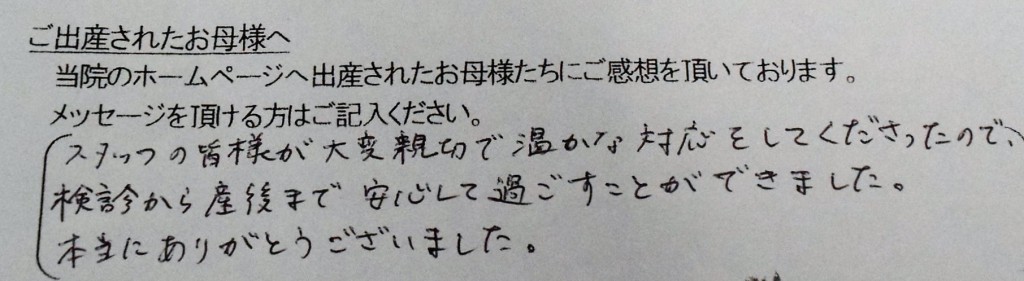 ご出産されたお母様へ
当院のホームページへ出産されたお母様たちにご感想を頂いております。
メッセージを頂ける方はご記入ください。
スタッフの皆様が大変親切で温かな対応をしてくださったので、
検診から産後まで安心して過ごすことができました。
本当にありがとうございました。